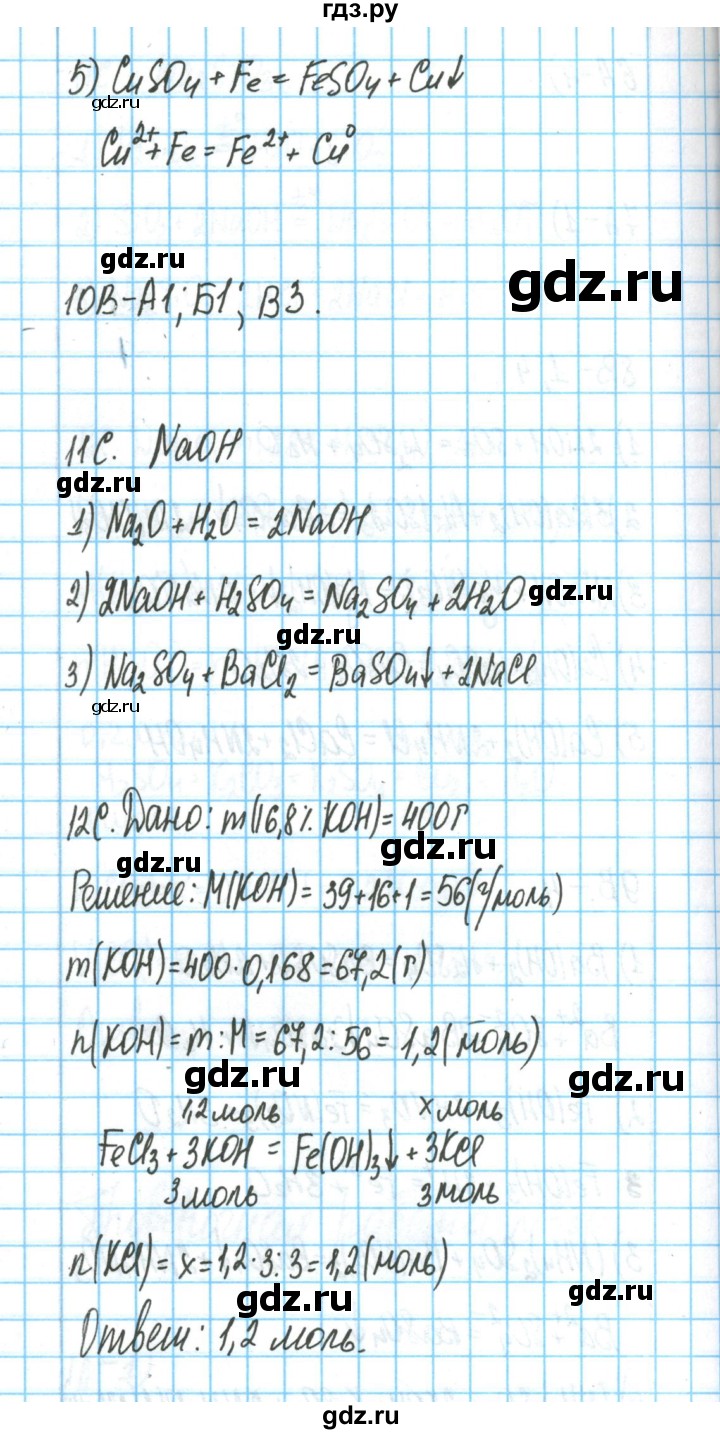 гдз.ру
5) CuSO₄ + Fe = FeSO₄ + Cu↓
gdz.ru
Cu²⁺ + Fe = Fe²⁺ + Cu⁰
gdz.ru
gdz.ru
10В-А1; Б1; В3.
11С. NaOH
gdz.ru
1) Na₂O + H₂O = 2NaOH
2) 2NaOH + H₂SO₄ = Na₂SO₄ + 2H₂O
gdz.ru
gdz.ru
3) Na₂SO₄ + BaCl₂ = BaSO₄↓ + 2NaCl
gdz.ru
12С. Дано: m(16,8% KOH) = 400г
gdz.ru
gdz.ru
Решение: M(KOH) = 39+16+1 = 56(г/моль)
m(KOH) = 400·0,168 = 67,2(г)
n(KOH) = m:M = 67,2:56 = 1,2(моль)
gdz.ru
gdz.ru
1,2 моль x моль
FeCl₃ + 3KOH = Fe(OH)₃↓ + 3KCl
3 моль 3 моль
n(KCl) = x = 1,2·3:3 = 1,2(моль)
gdz.ru
gdz.ru
Ответ: 1,2 моль.
gdz.ru